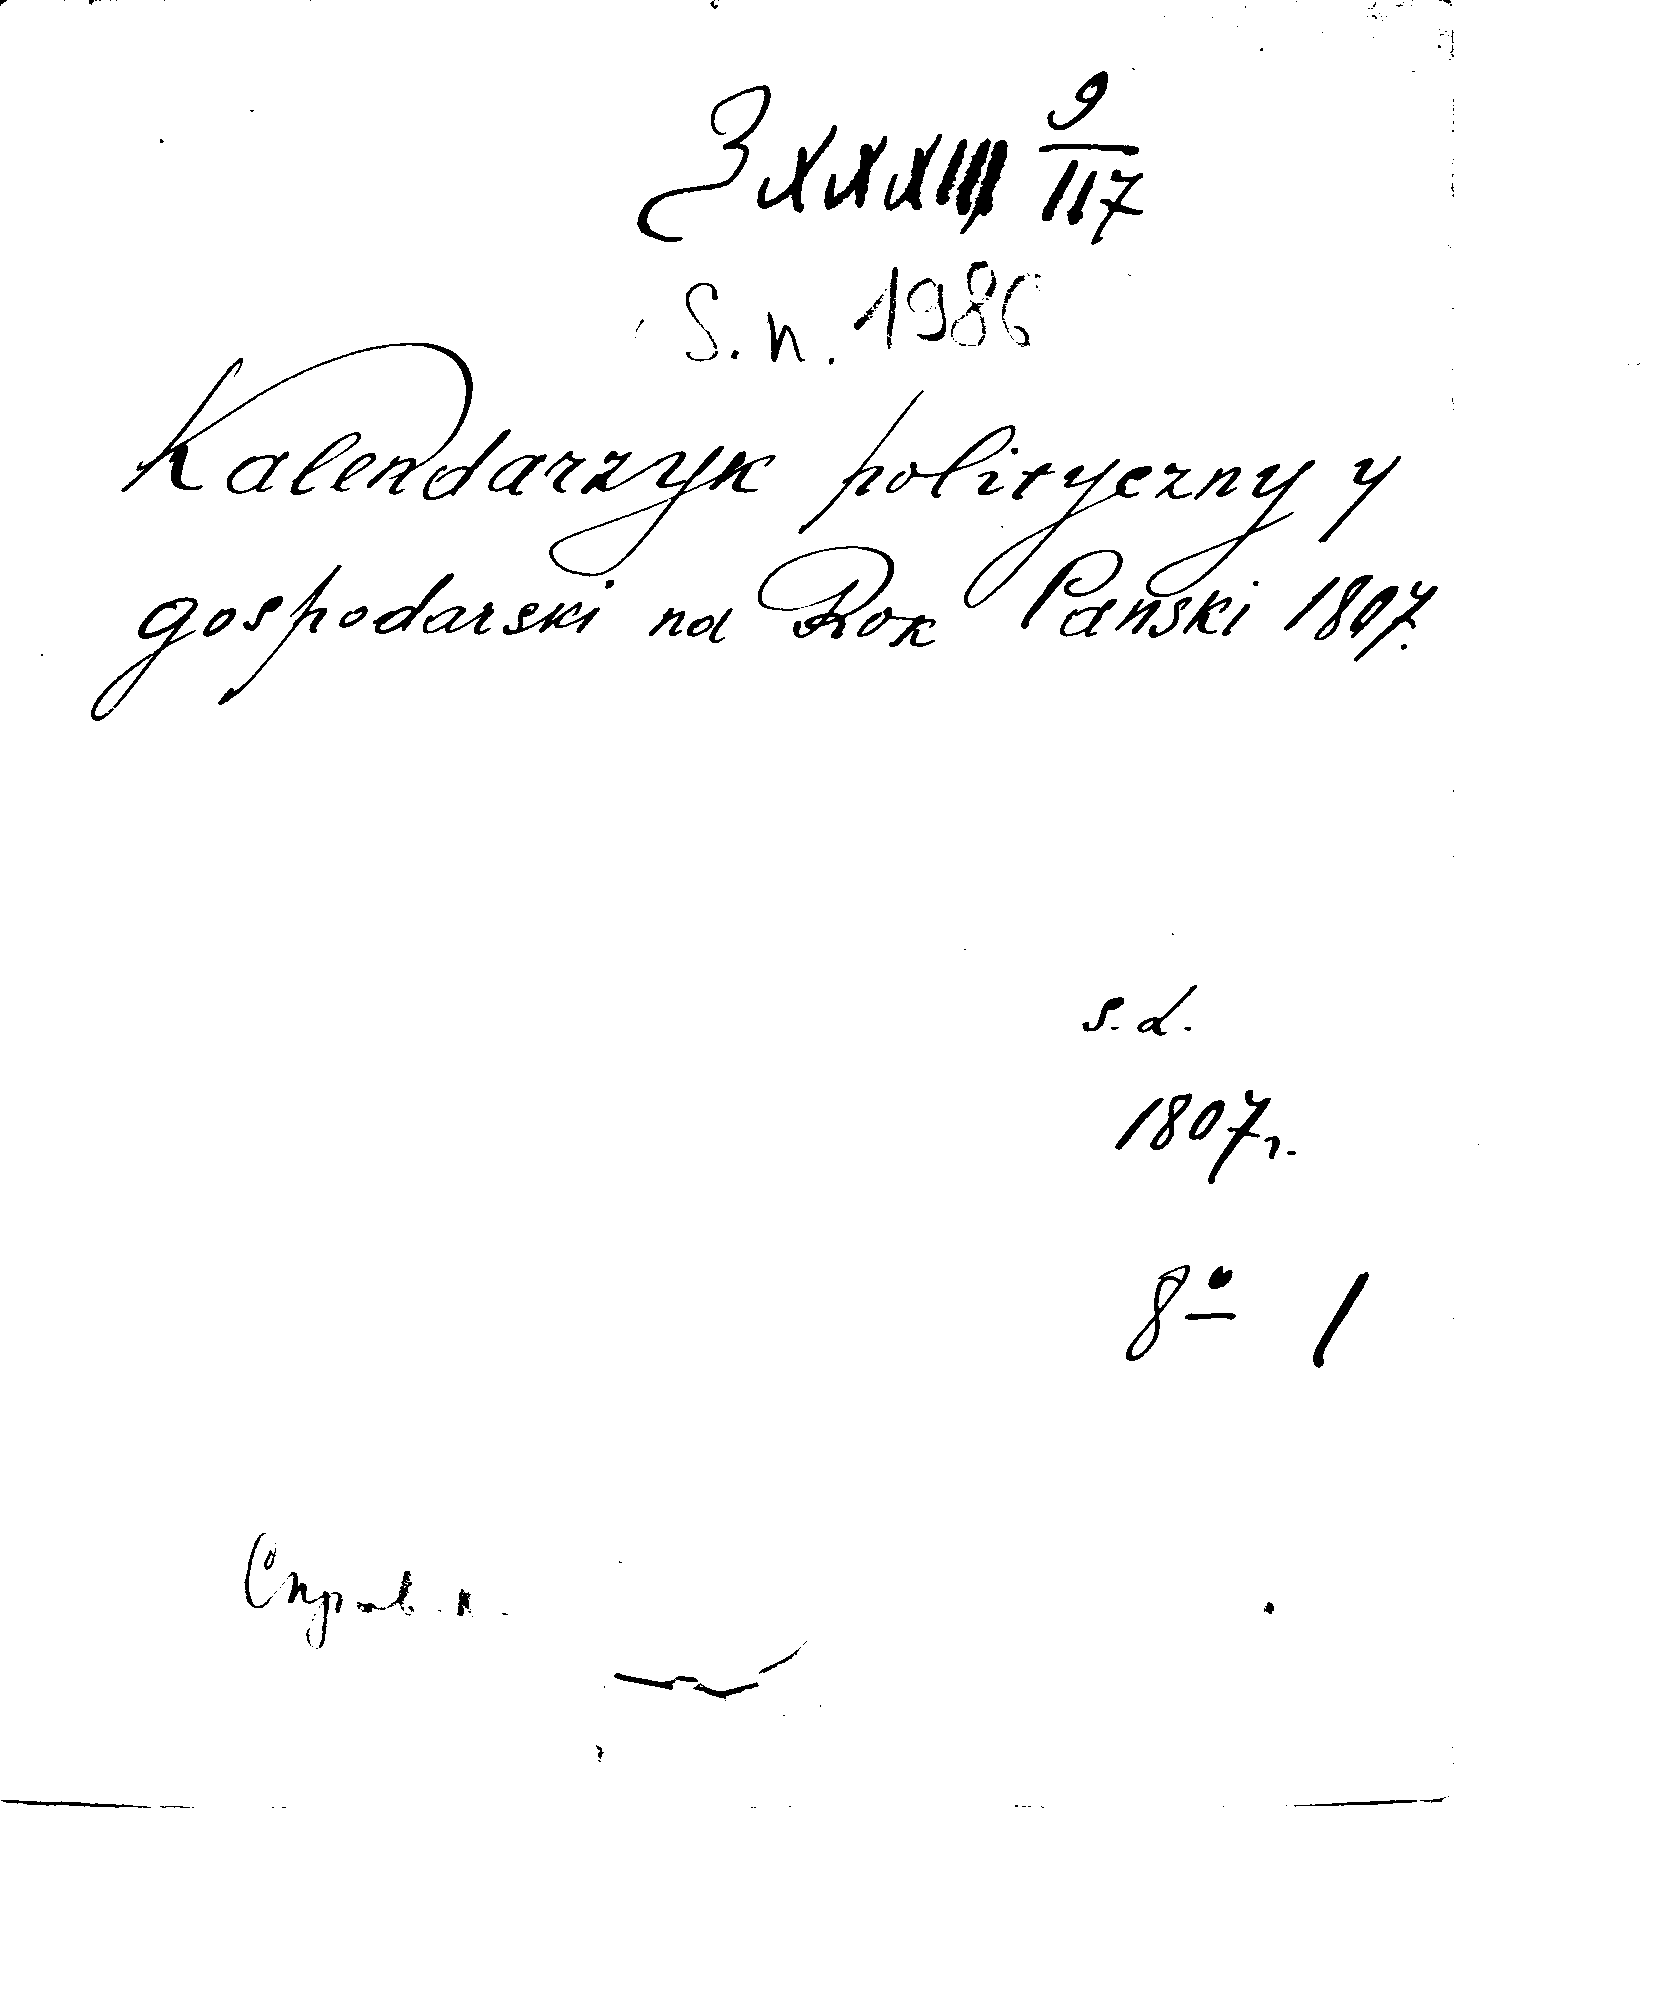 З XXXIII 9/117
S. n. 1986
Kalendarzyk polityczny y
gospodarski na Rok Pański 1807.
s. l.
1807 г.
8º 1
Справ. н.